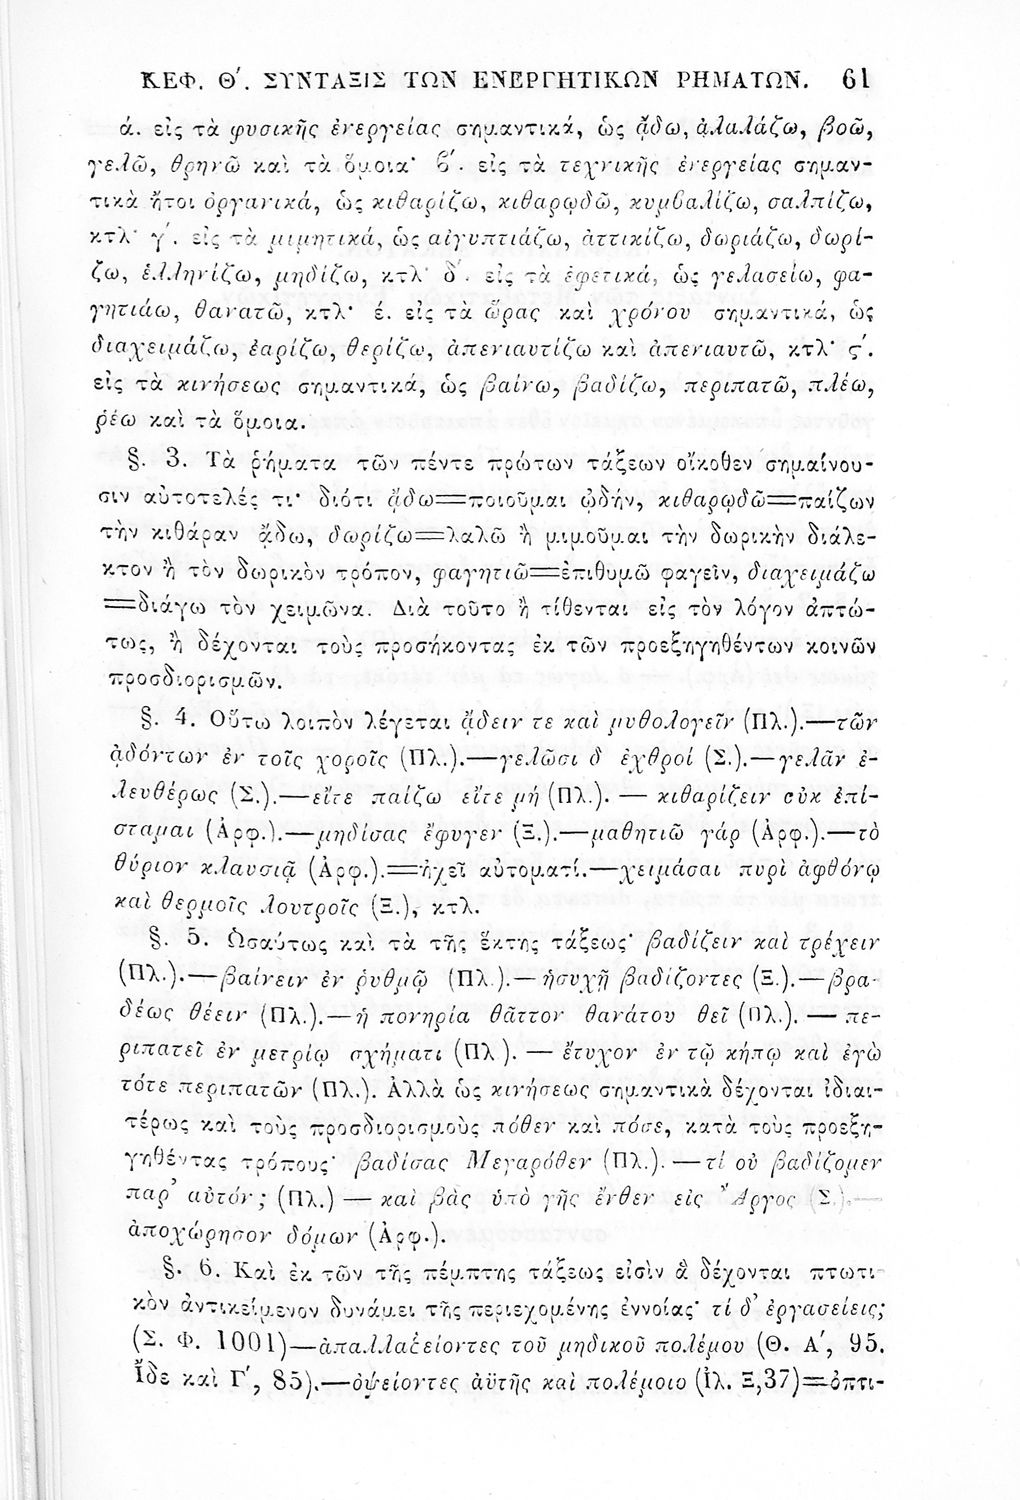 ΚΕΦ. Θʹ. ΣΥΝΤΑΞΙΣ ΤΩΝ ΕΝΕΡΓΗΤΙΚΩΝ ΡΗΜΑΤΩΝ. 61
ά. εἰς τὰ φυσικῆς ἐνεργείας σημαντικά, ὡς ᾄδω, ἀλαλάζω, βοῶ,
γελῶ, θρηνῶ καὶ τὰ ὅμοια· ϐʹ. εἰς τὰ τεχνικῆς ἐνεργείας σημαν-
τικὰ ἤτοι ὀργανικά, ὡς κιθαρίζω, κιθαρῳδῶ, κυμϐαλίζω, σαλπίζω,
κτλ· γʹ. εἰς τὰ μιμητικά, ὡς αἰγυπτιάζω, ἀττικίζω, δωριάζω, δωρί-
ζω, ἑλληνίζω, μηδίζω, κτλ· δʹ. εἰς τὰ ἐφετικά, ὡς γελασείω, φα-
γητιάω, θανατῶ, κτλ· έ. εἰς τὰ ὥρας καὶ χρόνου σημαντικά, ὡς
διαχειμάζω, ἐαρίζω, θερίζω, ἀπενιαυτίζω καὶ ἀπενιαυτῶ, κτλ· ϛʹ.
εἰς τὰ κινήσεως σημαντικά, ὡς βαίνω, βαδίζω, περιπατῶ, πλέω,
ῥέω καὶ τὰ ὅμοια.
§. 3. Τὰ ῥήματα τῶν πέντε πρώτων τάξεων οἴκοθεν σημαίνου-
σιν αὐτοτελές τι· διότι ᾄδω=ποιοῦμαι ᾠδήν, κιθαρῳδῶ=παίζων
τὴν κιθάραν ᾄδω, δωρίζω=λαλῶ ἢ μιμοῦμαι τὴν δωρικὴν διάλε-
κτον ἢ τὸν δωρικὸν τρόπον, φαγητιῶ=ἐπιθυμῶ φαγεῖν, διαχειμάζω
=διάγω τὸν χειμῶνα. Διὰ τοῦτο ἢ τίθενται εἰς τὸν λόγον ἀπτώ-
τως, ἢ δέχονται τοὺς προσήκοντας ἐκ τῶν προεξηγηθέντων κοινῶν
προσδιορισμῶν.
§. 4. Οὕτω λοιπὸν λέγεται ᾄδειν τε καὶ μυθολογεῖν (Πλ.).—τῶν
ᾀδόντων ἐν τοῖς χοροῖς (Πλ.).—γελῶσι δ' ἐχθροί (Σ.).—γελᾶν ἐ-
λευθέρως (Σ.).—εἴτε παίζω εἴτε μή (Πλ.). — κιθαρίζειν οὐκ ἐπί-
σταμαι (Ἀρφ.).—μηδίσας ἔφυγεν (Ξ.).—μαθητιῶ γάρ (Ἀρφ.).—τὸ
θύριον κλαυσιᾷ (Ἀρφ.).=ἠχεῖ αὐτοματί.—χειμάσαι πυρὶ ἀφθόνῳ
καὶ θερμοῖς λουτροῖς (Ξ.), κτλ.
§. 5. Ὡσαύτως καὶ τὰ τῆς ἕκτης τάξεως· βαδίζειν καὶ τρέχειν
(Πλ.).—βαίνειν ἐν ῥυθμῷ (Πλ.).—ἡσυχῆ βαδίζοντες (Ξ.).—βρα-
δέως θέειν (Πλ.).—ἡ πονηρία θᾶττον θανάτου θεῖ (Πλ.). — πε-
ριπατεῖ ἐν μετρίῳ σχήματι (Πλ). — ἔτυχον ἐν τῷ κήπῳ καὶ ἐγὼ
τότε περιπατῶν (Πλ.). Ἀλλὰ ὡς κινήσεως σημαντικὰ δέχονται ἰδιαι-
τέρως καὶ τοὺς προσδιορισμοὺς πόθεν καὶ πόσε, κατὰ τοὺς προεξη-
γηθέντας τρόπους· βαδίσας Μεγαρόθεν (Πλ.).—τί οὐ βαδίζομεν
παρ' αὐτόν; (Πλ.) — καὶ βὰς ὑπὸ γῆς ἔνθεν εἰς Ἄργος (Σ.).—
ἀποχώρησον δόμων (Ἀρφ.).
§. 6. Καὶ ἐκ τῶν τῆς πέμπτης τάξεως εἰσὶν ἃ δέχονται πτωτι-
κὸν ἀντικείμενον δυνάμει τῆς περιεχομένης ἐννοίας· τί δ' ἐργασείεις;
(Σ. Φ. 1001)—ἀπαλλαξείοντες τοῦ μηδικοῦ πολέμου (Θ. Αʹ, 95.
Ἴδε καὶ Γʹ, 85).—ὀψείοντες ἀϋτῆς καὶ πολέμοιο (Ἰλ. Ξ,37)=ὀπτι-